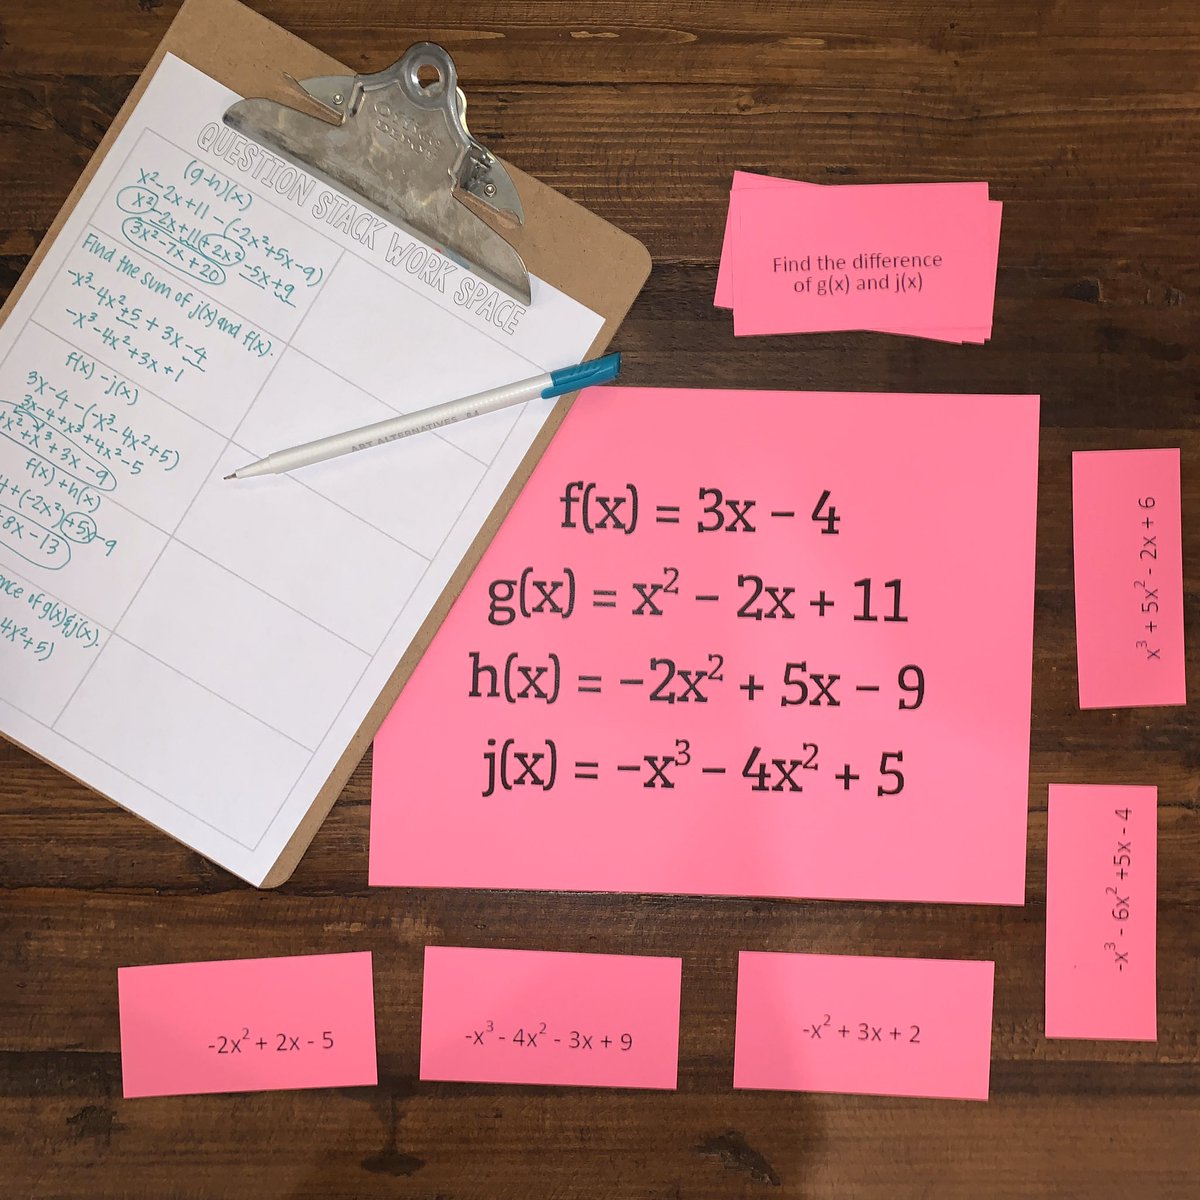 QUESTION STACK WORK SPACE
(g-h)(x)
x²-2x+11-(-2x²+5x-9)
x²-2x+11+2x²-5x+9
3x²-7x+20
Find the sum of j(x) and f(x).
-x³-4x²+5+3x-4
-x³-4x²+3x+1
f(x)-j(x)
3x-4-(-x³-4x²+5)
3x-4+x³+4x²-5
x²+x³+3x-9
f(x)+h(x)
4+(-2x²)+5x-9
8x-13
of g(x)&j(x).
4x²+5)
ART ALTERNATIVES 0.4
Find the difference
of g(x) and j(x)
f(x) = 3x − 4
g(x) = x² − 2x + 11
h(x) = −2x² + 5x − 9
j(x) = −x³ − 4x² + 5
x³ + 5x² - 2x + 6
-x³ - 6x² +5x - 4
-2x² + 2x - 5
-x³ - 4x² - 3x + 9
-x² + 3x + 2